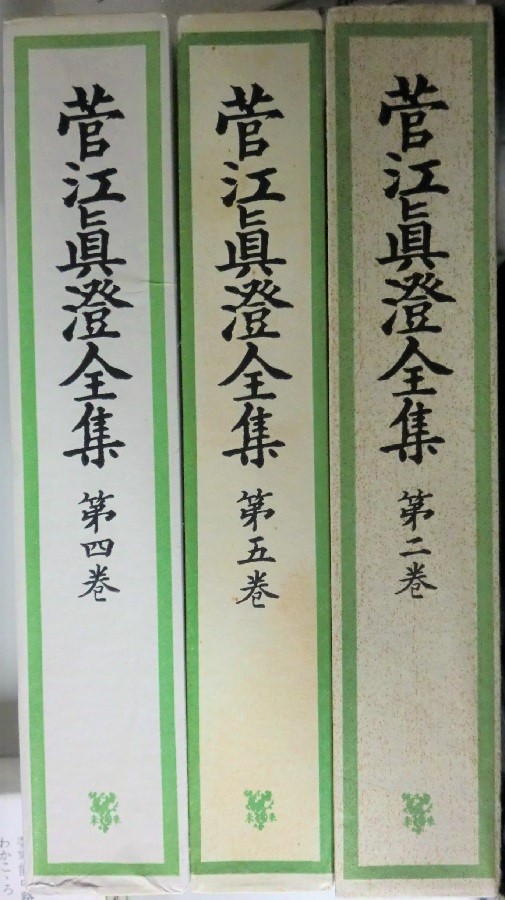 菅江眞澄全集 第四巻
菅江眞澄全集 第五巻
菅江眞澄全集 第二巻
未来
未来
未来
わかこゝろ